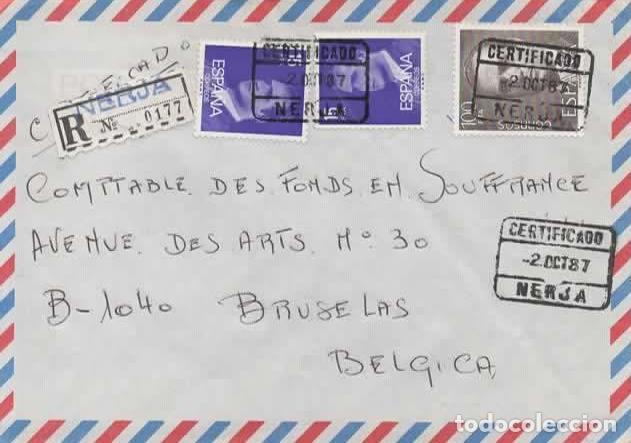 NERJA
R Nº 0177
ESPAÑA
CORREOS
ESPAÑA
100
ESPAÑA
CORREOS
CERTIFICADO
-2.OCT87
NERJA
CERTIFICADO
-2.OCT87
NERJA
COMPTABLE DES FONDS EN SOUFFRANCE
AVENUE DES ARTS Nº 30
B-1040 BRUSELAS
BELGICA
CERTIFICADO
-2.OCT87
NERJA
todocoleccion